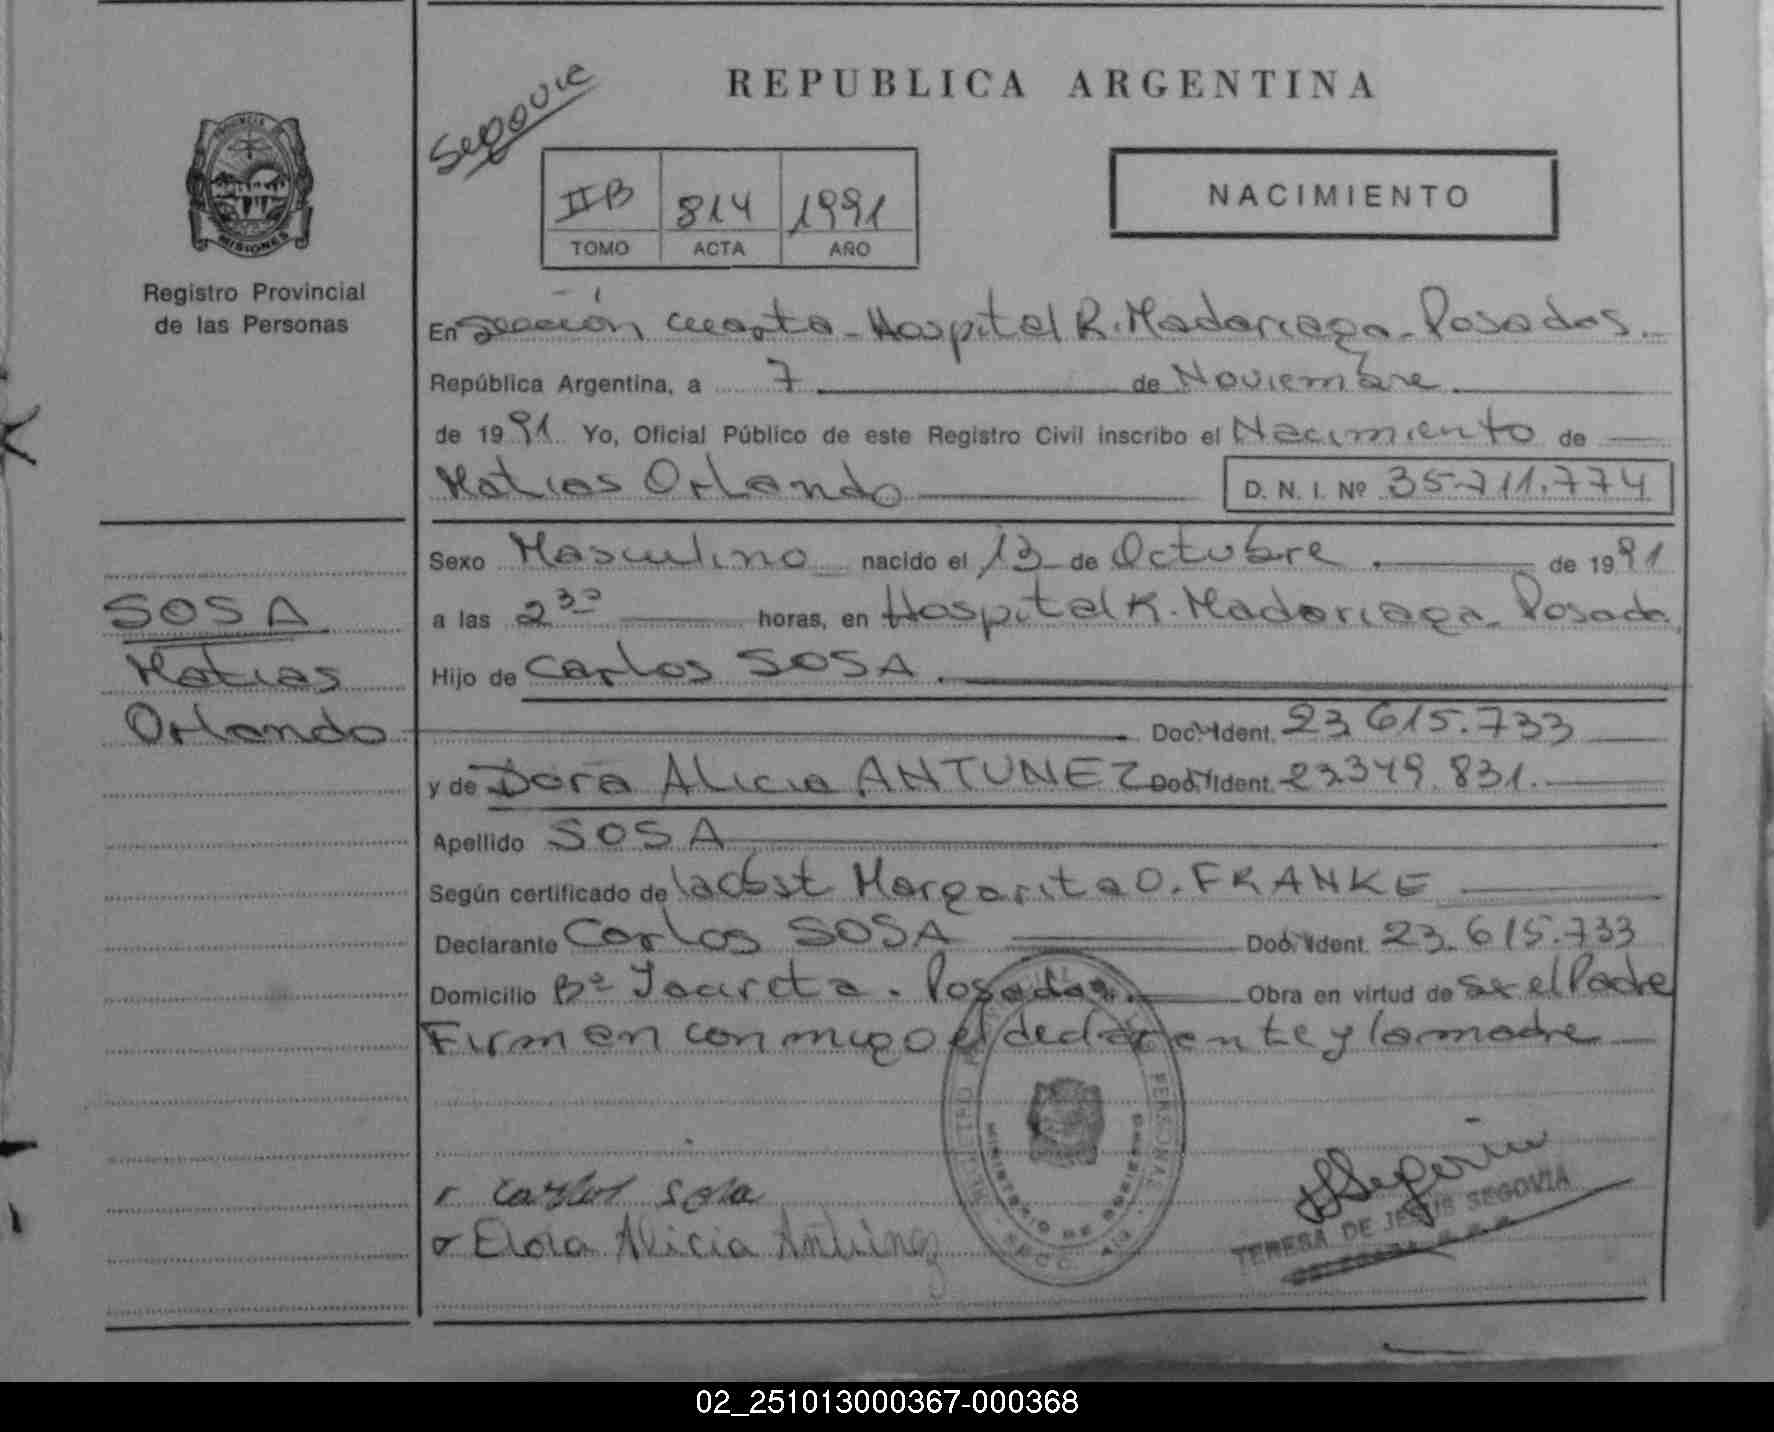 Segovia
REPUBLICA ARGENTINA
PROVINCIA
MISIONES
IIB 814 1991
TOMO ACTA AÑO
NACIMIENTO
Registro Provincial
de las Personas
En Sección cuarta - Hospital R. Madariaga - Posadas.
República Argentina, a 7 de Noviembre
de 1991 Yo, Oficial Público de este Registro Civil inscribo el Nacimiento de
Matias Orlando D. N. I. Nº 35.711.774
Sexo Masculino nacido el 13 de Octubre de 1991
a las 2 30 horas, en Hospital R. Madariaga - Posadas
Hijo de Carlos SOSA.
Doc. Ident. 23.615.733
y de Dora Alicia ANTUNEZ Doc. Ident. 23.349.831.
Apellido SOSA
Según certificado de la Obst Margarita O. FRANKE
Declarante Carlos SOSA Doc. Ident. 23.615.733
Domicilio Bº Yacireta - Posadas. Obra en virtud de ser el Padre
Firman conmigo el declarante y la madre
SOSA
Matias
Orlando
Carlos Sosa
Alicia Antunez
MINISTERIO DE GOBIERNO
PERSONAS
Segovia
TERESA DE JESUS SEGOVIA
02_251013000367-000368